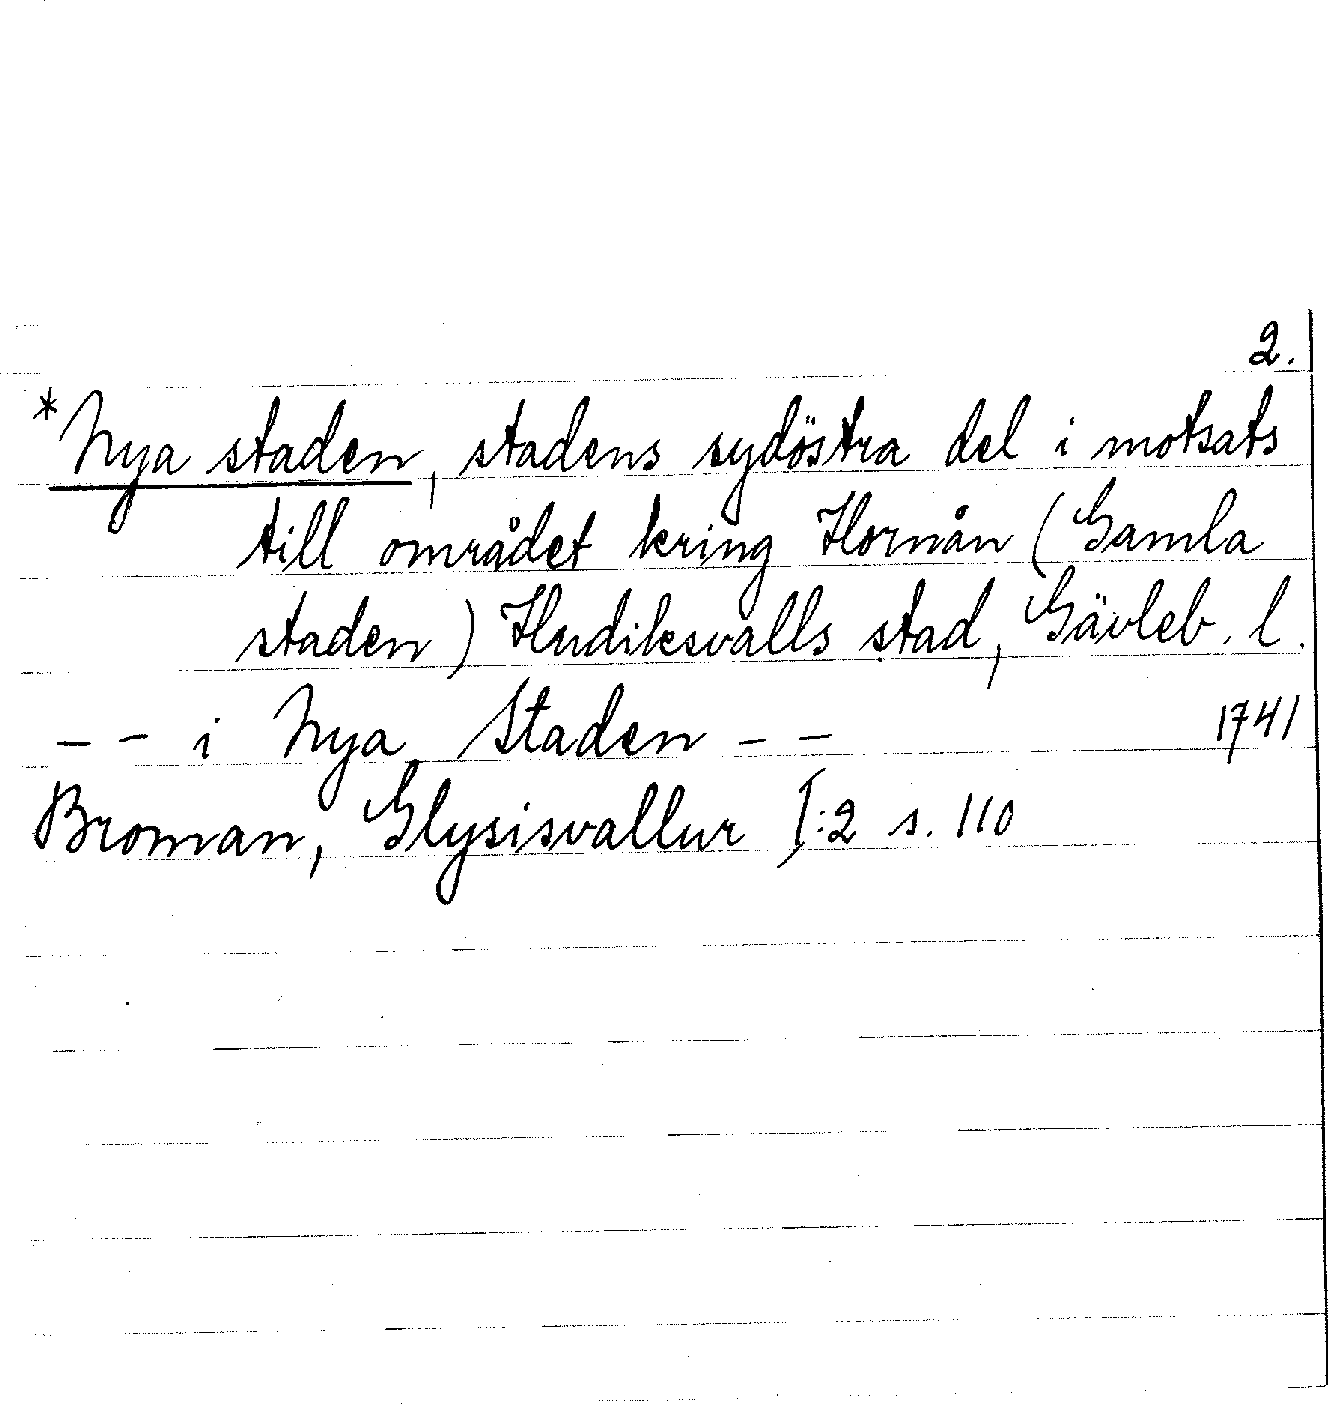 2.
*Nya staden, stadens sydöstra del i motsats
till området kring Hornån (Gamla
staden) Hudiksvalls stad, Gävleb. l.
-- i Nya Staden -- 1741
Broman, Glysisvallur I:2 s. 110